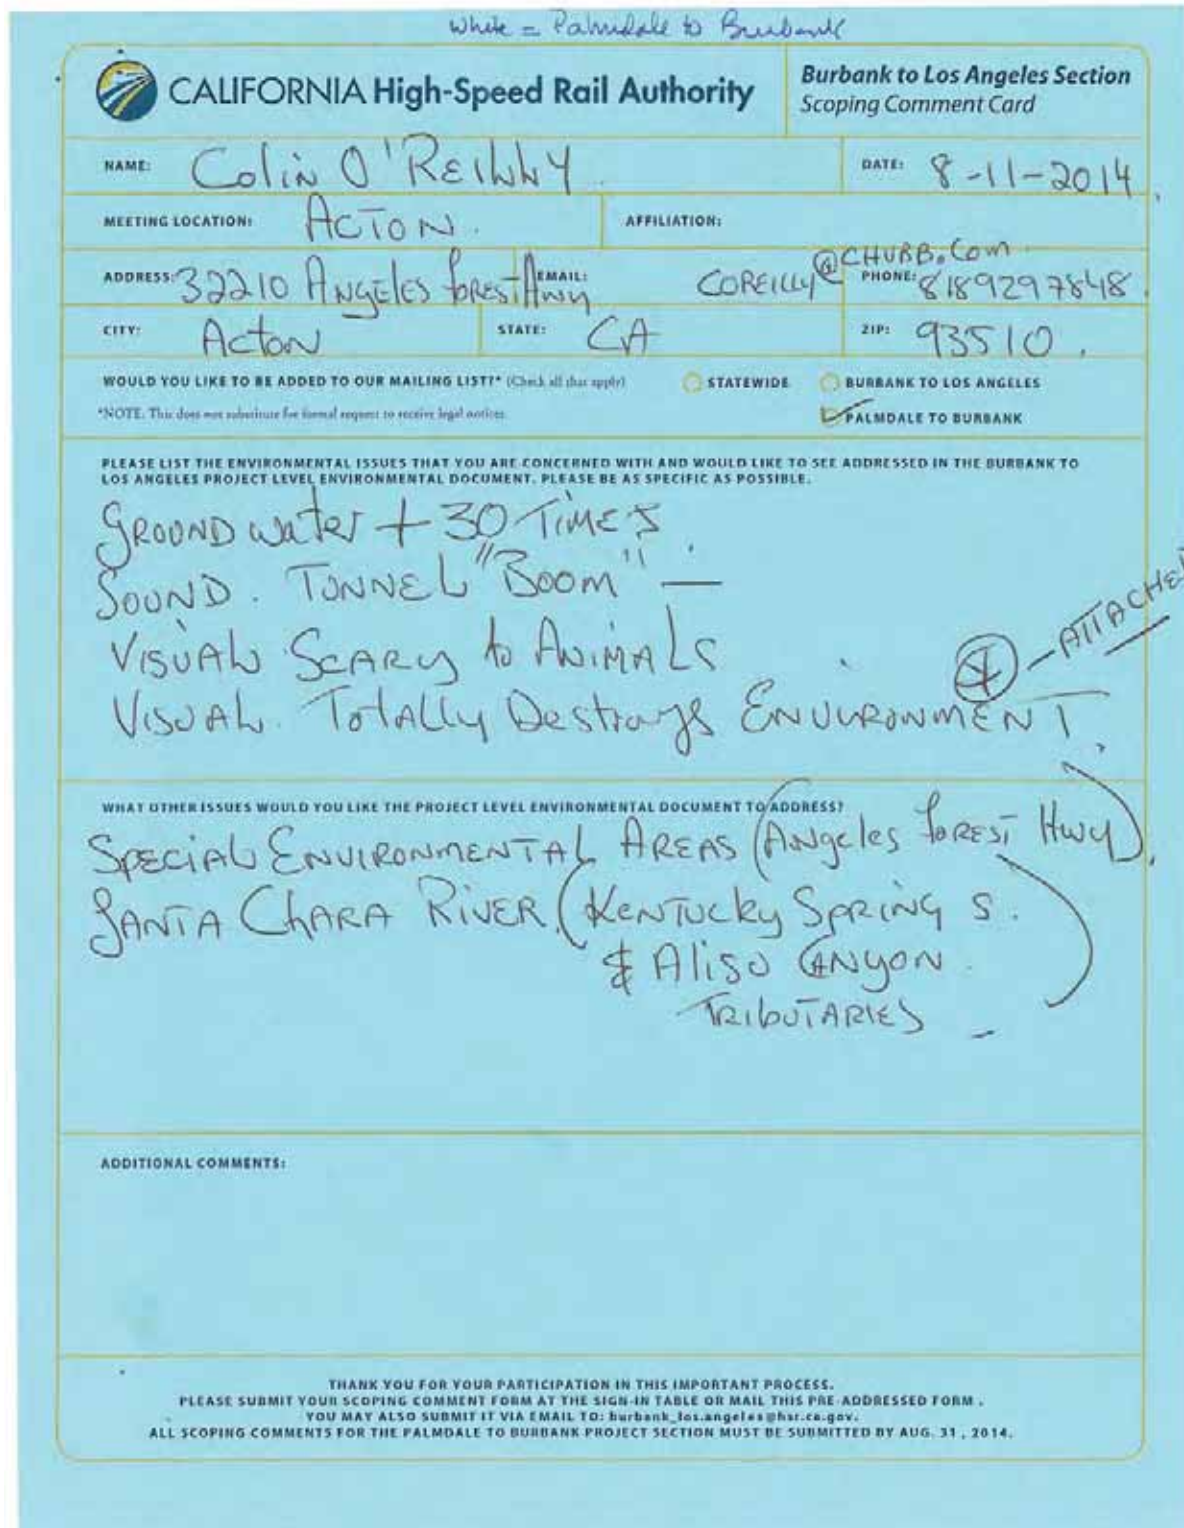 White = Palmdale to Burbank
CALIFORNIA High-Speed Rail Authority
Burbank to Los Angeles Section
Scoping Comment Card
NAME: Colin O'Reilly
DATE: 8-11-2014
MEETING LOCATION: ACTON.
AFFILIATION:
ADDRESS: 32210 Angeles Forest Hwy
EMAIL: COREILLY@CHUBB.Com
PHONE: 8189297848
CITY: Acton
STATE: CA
ZIP: 93510.
WOULD YOU LIKE TO BE ADDED TO OUR MAILING LIST?* (Check all that apply)
STATEWIDE
BURBANK TO LOS ANGELES
*NOTE: This does not substitute for formal request to receive legal notices.
PALMDALE TO BURBANK
PLEASE LIST THE ENVIRONMENTAL ISSUES THAT YOU ARE CONCERNED WITH AND WOULD LIKE TO SEE ADDRESSED IN THE BURBANK TO
LOS ANGELES PROJECT LEVEL ENVIRONMENTAL DOCUMENT. PLEASE BE AS SPECIFIC AS POSSIBLE.
GROUND water + 30 TIMES.
SOUND. TUNNEL "BOOM" —
VISUAL SCARY to ANIMALS
- ATTACHED
VISUAL. TOTALLY Destroys ENVIRONMENT.
WHAT OTHER ISSUES WOULD YOU LIKE THE PROJECT LEVEL ENVIRONMENTAL DOCUMENT TO ADDRESS?
SPECIAL ENVIRONMENTAL AREAS (Angeles Forest Hwy).
SANTA CLARA RIVER. (KENTUCKY SPRINGS.
& Aliso CANYON.
TRIBUTARIES —)
ADDITIONAL COMMENTS:
THANK YOU FOR YOUR PARTICIPATION IN THIS IMPORTANT PROCESS.
PLEASE SUBMIT YOUR SCOPING COMMENT FORM AT THE SIGN-IN TABLE OR MAIL THIS PRE-ADDRESSED FORM.
YOU MAY ALSO SUBMIT IT VIA EMAIL TO: burbank_los.angeles@hsr.ca.gov.
ALL SCOPING COMMENTS FOR THE PALMDALE TO BURBANK PROJECT SECTION MUST BE SUBMITTED BY AUG. 31, 2014.